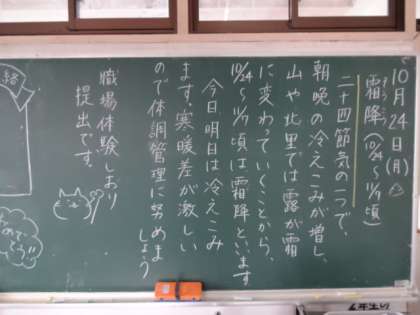 10月24日(月)
霜降(10/24〜11/7頃)
二十四節気の一つで、
朝晩の冷えこみが増し、
山や北里では露が霜
に変わっていくことから、
10/24〜11/7頃は霜降といいます
今日明日は冷えこみ
ます。寒暖差が激しい
ので体調管理に努めま
しょう
職場体験しおり
提出です。
絡
おめで
とう!!